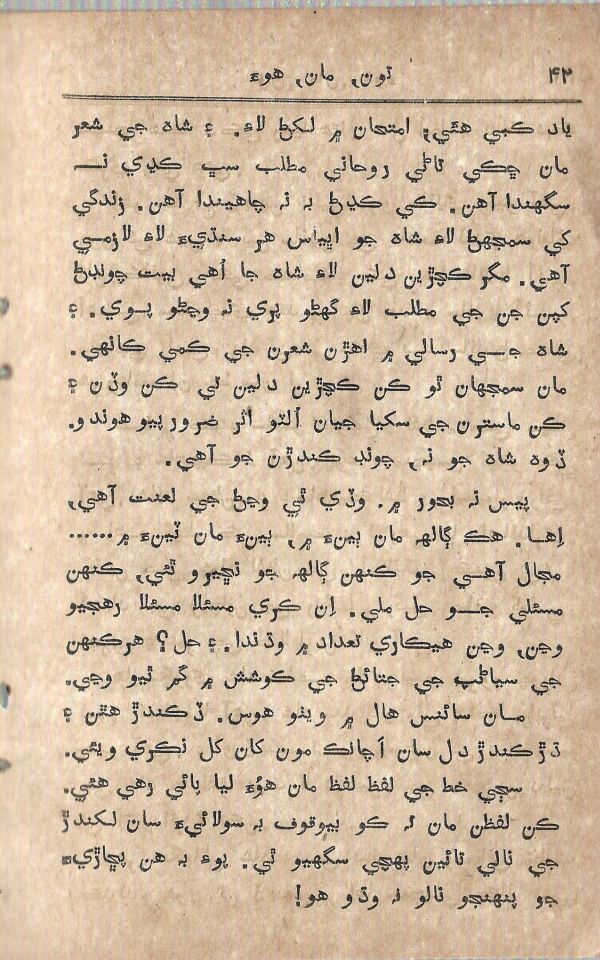 ۴۲ تون، مان، هوءَ
ياد ڪبي هئي؛ امتحان ۾ لکڻ لاءِ. ۽ شاھ جي شعر
مان چڪي ٿاڻي روحاني مطلب سڀ ڪڍي نـــ
سگهندا آهن. ڪي ڪڍڻ بہ نہ چاهيندا آهن. زندگي
کي سمجهڻ لاءِ شاھ جو اڀياس هر سنڌيءَ لاءِ لازمـي
آهي. مگر ڪچڙين دلين لاءِ شاھ جا اُهي بيت چونڊڻ
کپن جن جي مطلب لاءِ گهڻو پري نہ وڃڻو پـوي. ۽
شاھ جـي رسالي ۾ اهڙن شعرن جي ڪمي ڪانهي.
مان سمجهان ٿو ڪن ڪچڙين دلين تي ڪن وڏن ۽
ڪن ماسترن جي سکيا جيان اُلٽو اثر ضرور پيو هوندو.
ڏوھ شاھ جو نہ، چونڊ ڪندڙن جو آهي.
پيس نہ بحور ۾. وڏي ٿي وڃڻ جي لعنت آهي،
اِهـا. هڪ ڳالهہ مان ٻيءَ ۾، ٻيءَ مان ٽيءَ ۾......
مجال آهـي جو ڪنهن ڳالهہ جو نڇيرو ٿئي، ڪنهن
مسئلي جـو حل ملي. اِن ڪري مسئلا مسئلا رهجيو
وڃن، وڃن هيڪاري تعداد ۾ وڌندا. ۽ حل؟ هرڪنهن
جي سياڻپ جي جتائڻ جي ڪوشش ۾ گم ٿيو وڃي.
مـان سائنس هال ۾ ويٺو هوس. ڏڪندڙ هٿن ۽
ڌڙڪندڙ دل سان اَچانڪ مون کان کل نڪري ويئي.
سڄي خط جي لفظ لفظ مان هوُءَ ليا پائي رهي هئي.
ڪن لفظن مان تہ ڪو بيوقوف بہ سولائيءَ سان لکندڙ
جي نالي تائين پهچي سگهيو ٿي. پوءِ بہ هن پڇاڙيءَ
جو پنهنجو نالو نہ وڌو هو!